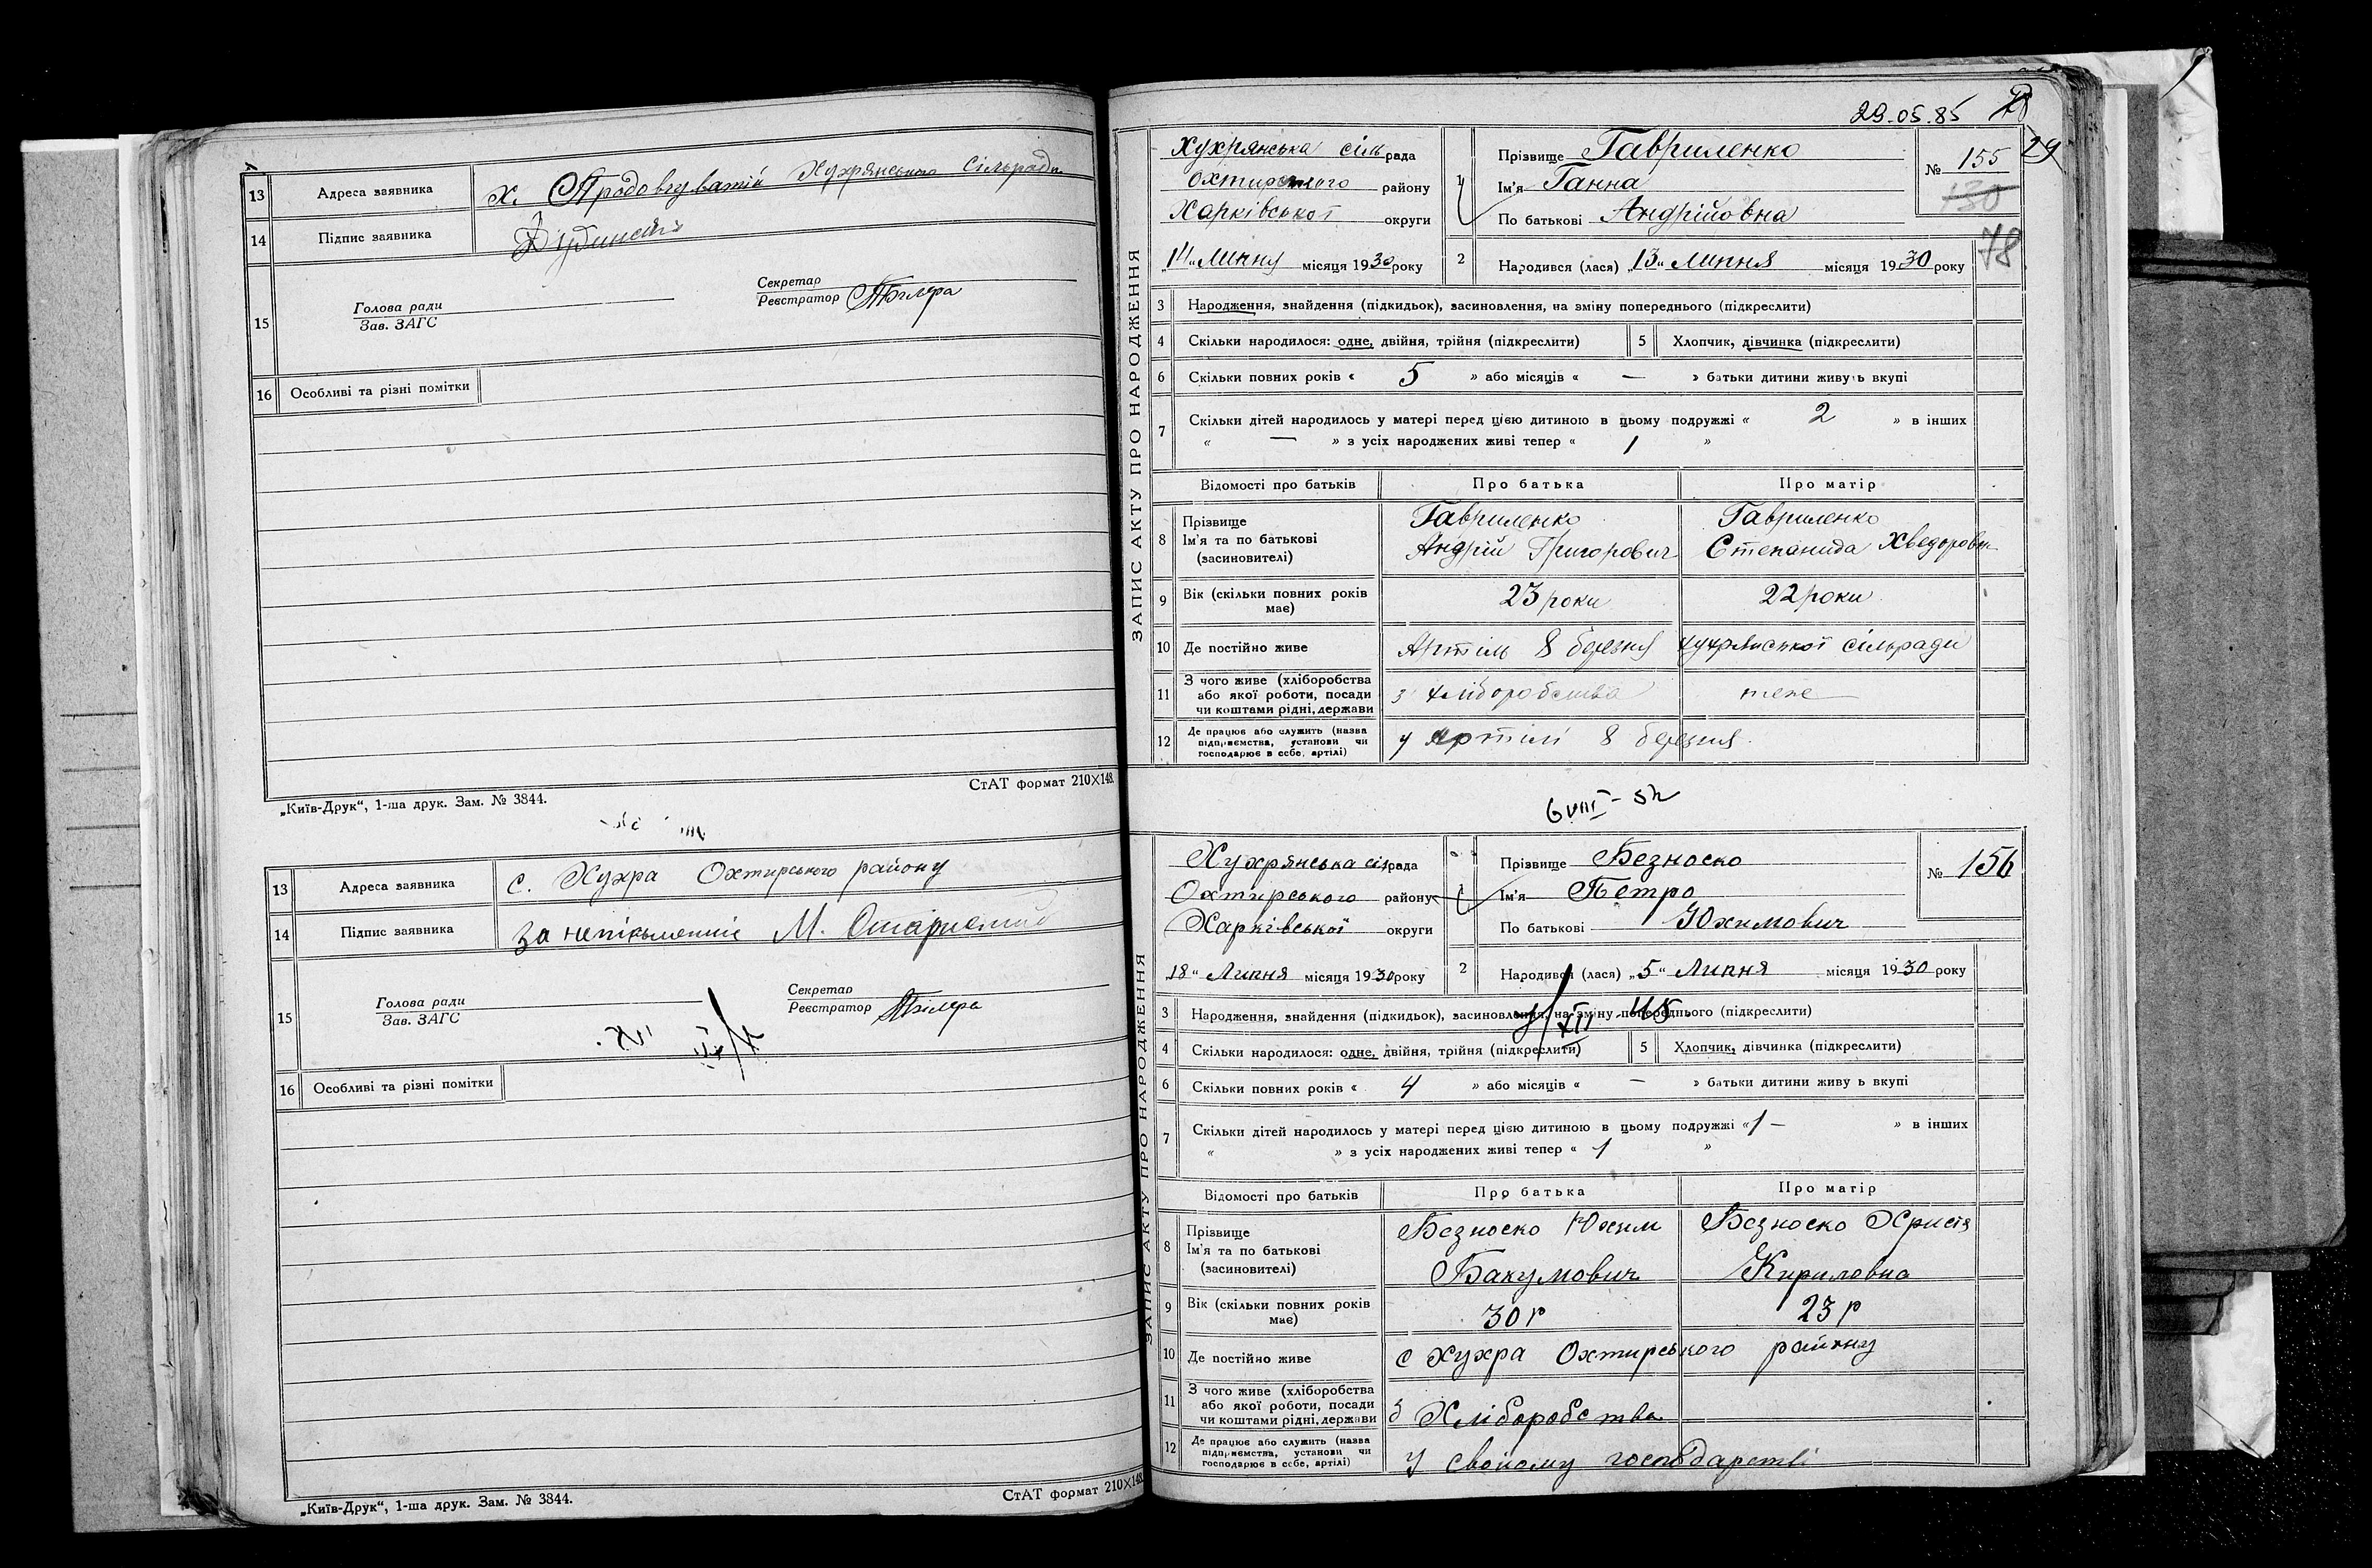 13 Адреса заявника х. Продовгуватій Хухрянської Сільради
14 Підпис заявника
15 Голова ради
Зав. ЗАГС
Секретар
Реєстратор
16 Особливі та різні помітки
СтАТ формат 210×148.
„Київ-Друк“, 1-ша друк. Зам. № 3844.
13 Адреса заявника с. Хухра Охтирського району
14 Підпис заявника за непісьменніс М.
15 Голова ради
Зав. ЗАГС
Секретар
Реєстратор
16 Особливі та різні помітки
СтАТ формат 210×148.
„Київ-Друк“, 1-ша друк. Зам. № 3844.
29.05.85
29
78
ЗАПИС АКТУ ПРО НАРОДЖЕННЯ
Хухрянська сільрада
Охтирського району
Харківської округи
„14“ Липня місяця 1930 року
1 Прізвище Гавриленко
Ім'я Ганна
По батькові Андрійовна
№ 155
130
2 Народився (лася) „13“ Липня місяця 1930 року
3 Народження, знайдення (підкидьок), засиновлення, на зміну попереднього (підкреслити)
4 Скільки народилося: одне, двійня, трійня (підкреслити) 5 Хлопчик, дівчинка (підкреслити)
6 Скільки повних років « 5 » або місяців « — » батьки дитини живуть вкупі
7 Скільки дітей народилось у матері перед цією дитиною в цьому подружжі « 2 » в інших
« — » з усіх народжених живі тепер « 1 »
Відомості про батьків Про батька Про матір
8 Прізвище Гавриленко Гавриленко
Ім'я та по батькові Андрій Григорович Степанида Хведоровн
(засиновителі)
9 Вік (скільки повних років має) 23 роки 22 роки
10 Де постійно живе Артіль 8 березня Хухрянської сільради
11 З чого живе (хліборобства
або якої роботи, посади
чи коштами рідні, держави з хліборобства теж
12 Де працює або служить (назва
підприємства, установи чи
господарює в себе, артілі) у артілі 8 березня
6 VIII - 52
ЗАПИС АКТУ ПРО НАРОДЖЕННЯ
Хухрянська сільрада
Охтирського району
Харківської округи
„18“ Липня місяця 1930 року
1 Прізвище Безноско
Ім'я Петро
По батькові Юхимович
№ 156
2 Народився (лася) „5“ Липня місяця 1930 року
3 Народження, знайдення (підкидьок), засиновлення, на зміну попереднього (підкреслити)
4 Скільки народилося: одне, двійня, трійня (підкреслити) 5 Хлопчик, дівчинка (підкреслити)
6 Скільки повних років « 4 » або місяців « — » батьки дитини живу ь вкупі
7 Скільки дітей народилось у матері перед цією дитиною в цьому подружжі « 1 — » в інших
« » з усіх народжених живі тепер « 1 »
Відомості про батьків Про батька Про матір
8 Прізвище Безноско Юхим Безноско Христя
Ім'я та по батькові Бакумович Кириловна
(засиновителі)
9 Вік (скільки повних років має) 30 р 23 р
10 Де постійно живе с Хухра Охтирського району
11 З чого живе (хліборобства
або якої роботи, посади
чи коштами рідні, держави З Хліборобства
12 Де працює або служить (назва
підприємства, установи чи
господарює в себе, артілі) У свойому господарстві